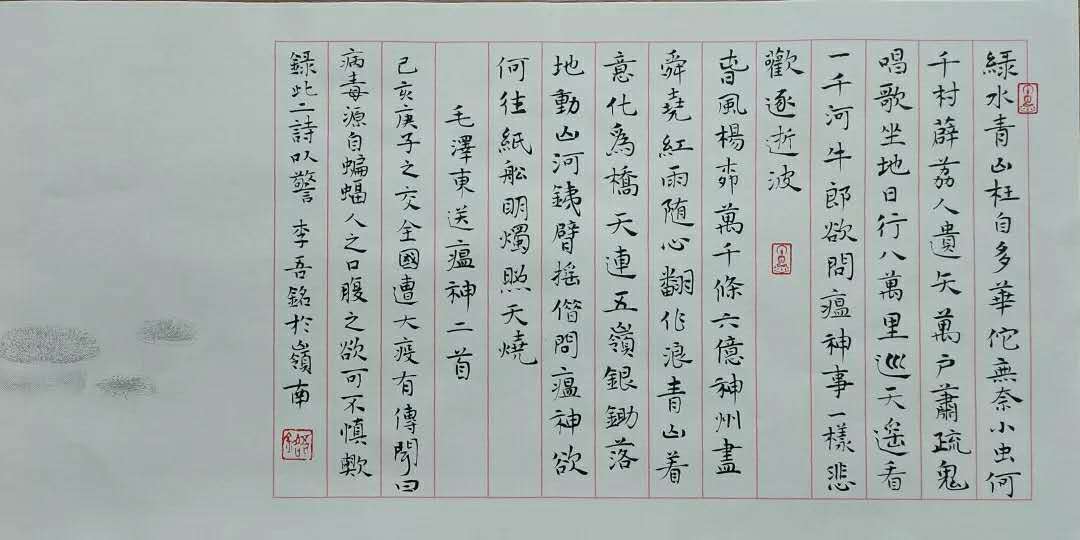 綠水青山枉自多華佗無奈小虫何
千村薜荔人遺矢萬户蕭疏鬼
唱歌坐地日行八萬里巡天遥看
一千河牛郎欲問瘟神事一樣悲
歡逐逝波
春風楊桺萬千條六億神州盡
舜堯紅雨随心翻作浪青山着
意化為橋天連五嶺銀鋤落
地動山河銕臂摇借問瘟神欲
何往紙船明燭照天燒
毛澤東送瘟神二首
己亥庚子之交全國遭大疫有傳聞曰
病毒源自蝙蝠人之口腹之欲可不慎歟
録此二詩以警 李吾銘於嶺南